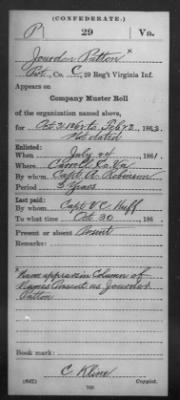 (CONFEDERATE.)
P 29 Va.
Jourdon Patton *
Pvt, Co. C, 29 Reg't Virginia Inf.
Appears on
Company Muster Roll
of the organization named above,
for Oct 31 to Feb 2, 1863.
not dated
Enlisted:
When July 24, 1861.
Where Carroll Co. Va
By whom Capt. A. Robinson
Period 3 years
Last paid:
By whom Capt. V. C. Huff
To what time Oct. 30, 186
Present or absent Present
Remarks:
* Name appears in Column of
Names Present as
Patton
Book mark:
C. Kline
(642) Copyist.